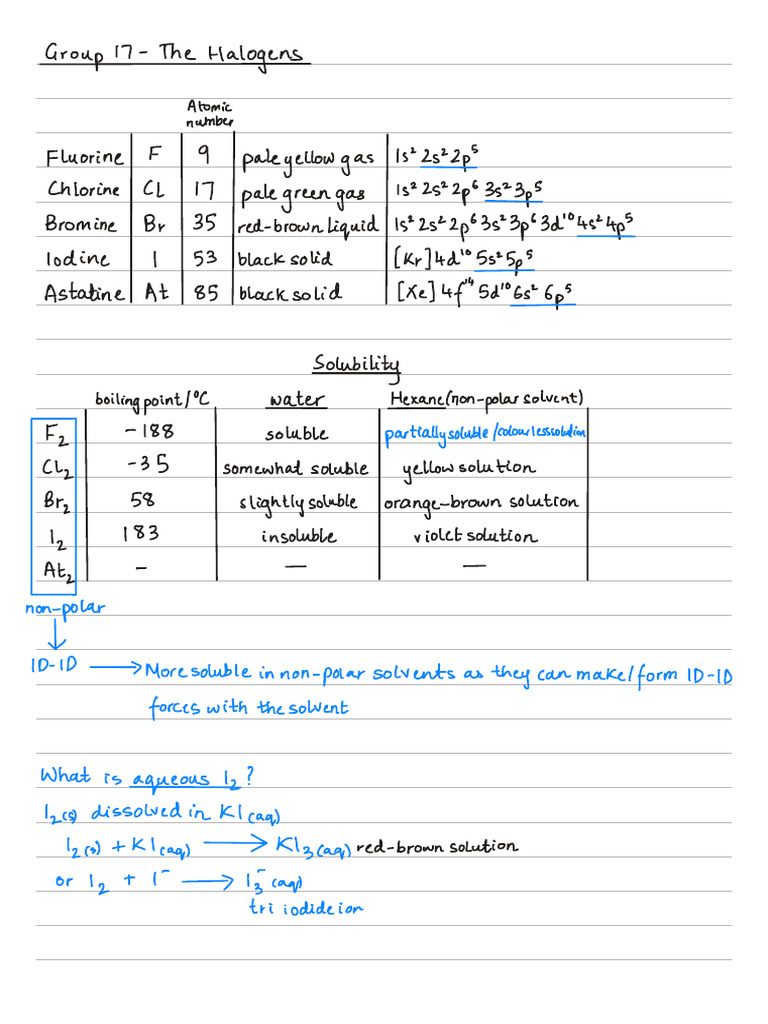 Group 17 - The Halogens
Atomic number
Fluorine F 9 pale yellow gas 1s² 2s² 2p⁵
Chlorine CL 17 pale green gas 1s² 2s² 2p⁶ 3s² 3p⁵
Bromine Br 35 red-brown liquid 1s² 2s² 2p⁶ 3s² 3p⁶ 3d¹⁰ 4s² 4p⁵
Iodine I 53 black solid [Kr] 4d¹⁰ 5s² 5p⁵
Astatine At 85 black solid [Xe] 4f¹⁴ 5d¹⁰ 6s² 6p⁵
Solubility
boiling point/°C water Hexane (non-polar solvent)
F₂ -188 soluble partially soluble/colourless solution
CL₂ -35 somewhat soluble yellow solution
Br₂ 58 slightly soluble orange-brown solution
I₂ 183 insoluble violet solution
At₂ - — —
non-polar
↓
ID-ID → More soluble in non-polar solvents as they can make/form ID-ID
forces with the solvent
What is aqueous I₂?
I₂(s) dissolved in KI(aq)
I₂(s) + KI(aq) → KI₃(aq) red-brown solution
or I₂ + I⁻ → I₃⁻(aq)
tri iodide ion